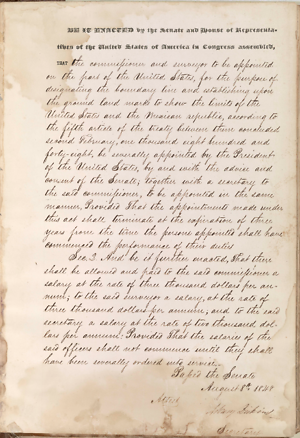 BE IT ENACTED by the Senate and House of Representa-
tives of the United States of America in Congress assembled,
THAT the commissioner and surveyor to be appointed
on the part of the United States, for the purpose of
designating the boundary line and establishing upon
the ground land marks to show the limits of the
United States and the Mexican republic, according to
the fifth article of the treaty between them concluded
second February, one thousand eight hundred and
forty-eight, be severally appointed by the President
of the United States, by and with the advice and
consent of the Senate, together with a secretary to
the said commissioner, to be appointed in the same
manner. Provided That the appointments made under
this act shall terminate at the expiration of three
years from the time the persons appointed shall have
commenced the performance of their duties
Sec. 2. And be it further enacted, That there
shall be allowed and paid to the said commissioner a
salary at the rate of three thousand dollars per an-
num; to the said surveyor a salary, at the rate of
three thousand dollars per annum; and to the said
secretary a salary at the rate of two thousand dol-
lars per annum: Provided That the salaries of the
said officers shall not commence until they shall
have been severally ordered into service.
Passed the Senate
August 8th 1848
Attest
Asbury Dickins
Secretary